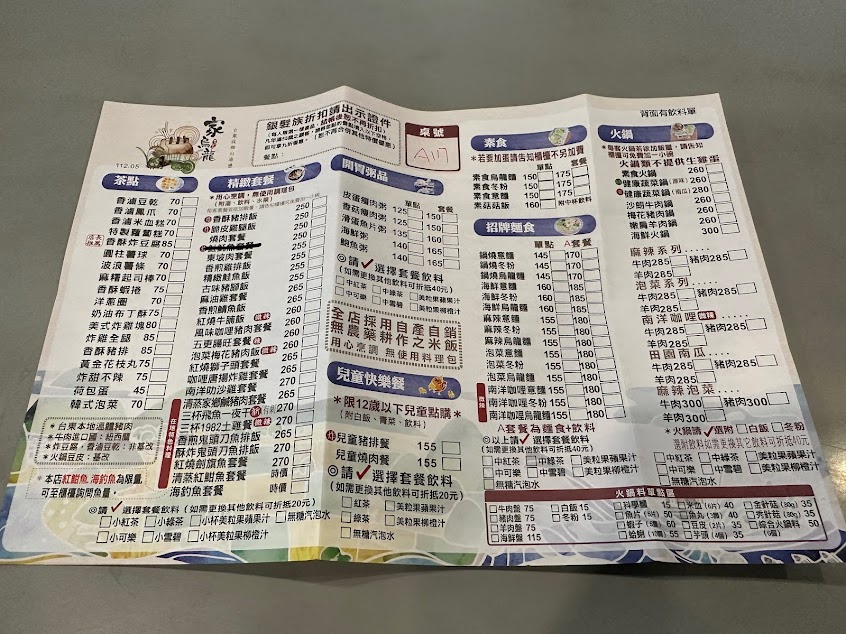 家烏龍
112.05
銀髮族折扣請出示證件
餐點:
桌號
A117
背面有飲料單
茶點
香滷豆乾 70
香滷鳳爪 70
香滷米血糕 70
特製蘿蔔糕 70
店長推薦 香酥炸豆腐 85
圓柱薯球 70
波浪薯條 70
麻糬起司棒 70
香酥蝦捲 75
洋蔥圈 70
奶油布丁酥 75
美式炸雞塊 80
炸雞全腿 85
香酥豬排 85
黃金花枝丸 75
炸甜不辣 75
荷包蛋 45
韓式泡菜 70
*台東本地溫體豬肉
*牛肉進口國:紐西蘭
*炸豆腐,香滷豆乾:非基改
*火鍋豆皮:基改
*本店紅魽魚 海釣魚為限量,
可至櫃檯詢問魚量。
精緻套餐
*用心烹調.無使用調理包
(附湯、飲料、水果)
香酥豬排飯 250
脆皮雞腿飯 250
燒肉套餐 250
東坡肉套餐 255
香煎雞排飯 255
精緻鯖魚飯 255
古味豬腳飯 255
麻油雞套餐 260
香煎鯖魚飯 260
紅燒牛腩飯 260
風味咖哩豬套餐 260
五更腸旺 260
泡菜梅花豬肉飯 260
紅燒獅子頭套餐
咖哩唐揚炸雞套餐
南洋叻沙雞套餐 270
清蒸家鄉鹹豬肉套餐 270
三杯飛魚一夜干
三杯1982土雞套餐
香煎鬼頭刀魚排飯 265
酥炸鬼頭刀魚排飯 265
紅燒劍旗魚套餐 265
清蒸紅魽魚套餐 時價
海釣魚套餐 時價
◎請✓選擇套餐飲料
(如需更換其他飲料可折抵20元)
小紅茶 小綠茶 小杯美粒果蘋果汁 無糖汽泡水
小可樂 小雪碧 小杯美粒果柳橙汁
開胃粥品
單點 套餐
皮蛋瘦肉粥 125 150
香菇瘦肉粥 125 150
滑蛋魚片粥 135
海鮮粥 140 165
鮑魚粥 140 165
◎請✓選擇套餐飲料
(如需更換其他飲料可折抵40元)
中紅茶 中綠茶 美粒果蘋果汁
中可樂 中雪碧 美粒果柳橙汁
全店採用自產自銷
無農藥耕作之米飯
用心烹調 無使用料理包
兒童快樂餐
*限12歲以下兒童點購*
(附白飯、青菜、飲料)
兒童豬排餐 155
兒童燒肉餐 155
◎請✓選擇套餐飲料
(如需更換其他飲料可折抵20元)
紅茶 美粒果蘋果汁
綠茶 美粒果柳橙汁
無糖汽泡水
素食
*若要加蛋請告知櫃檯不另加費
單點 套餐
素食烏龍麵 150 175
素食冬粉 150 175
素食意麵 150 175
素菇菇飯 附中杯飲料
招牌麵食
單點 A套餐
鍋燒意麵 145 170
鍋燒冬粉 145 170
鍋燒烏龍麵 145 170
海鮮意麵 160 185
海鮮冬粉 160 185
海鮮烏龍麵 160 185
麻辣意麵 155 180
麻辣冬粉 155 180
麻辣烏龍麵 155 180
泡菜意麵 155 180
泡菜冬粉 155 180
泡菜烏龍麵 155 180
南洋咖哩意麵 155 180
南洋咖哩冬粉 155 180
南洋咖哩烏龍麵 155 180
A套餐為麵食+飲料
◎以上請✓選擇套餐飲料
(如需更換其他飲料可折抵40元)
中紅茶 中綠茶 美粒果蘋果汁
中可樂 中雪碧 美粒果柳橙汁
無糖汽泡水
火鍋
火鍋類不提供生雞蛋
素食火鍋 260
健康蔬菜鍋
健康蔬菜鍋(南瓜) 280
沙朗牛肉鍋 260
梅花豬肉鍋 260
嫩肩羊肉鍋 260
海鮮火鍋 300
麻辣系列.....
牛肉285 豬肉285
羊肉285
泡菜系列.....
牛肉285 豬肉285
羊肉285
南洋咖哩 微辣
牛肉285 豬肉285
羊肉285
田園南瓜.....
牛肉285 豬肉285
羊肉285
麻辣泡菜.....
牛肉300 豬肉300
羊肉300
*火鍋請✓選附 白飯 冬粉
選附飲料如需更換其它飲料可折抵40元
中紅茶 中綠茶 美粒果蘋果汁
中可樂 中雪碧 美粒果柳橙汁
無糖汽泡水
火鍋料單點區
牛肉盤 75 白飯 15 科學麵 15 米血(6片) 40 金針菇(80g) 35
豬肉盤 75 冬粉 15 魚片(5片) 50 魚丸(3顆) 40 秀珍菇(80g) 35
羊肉盤 75 蝦子(5尾) 60 豆皮(2片) 35 綜合火鍋料 50
海鮮盤 115 蛤蜊(10顆) 55 芋頭(4個) 35